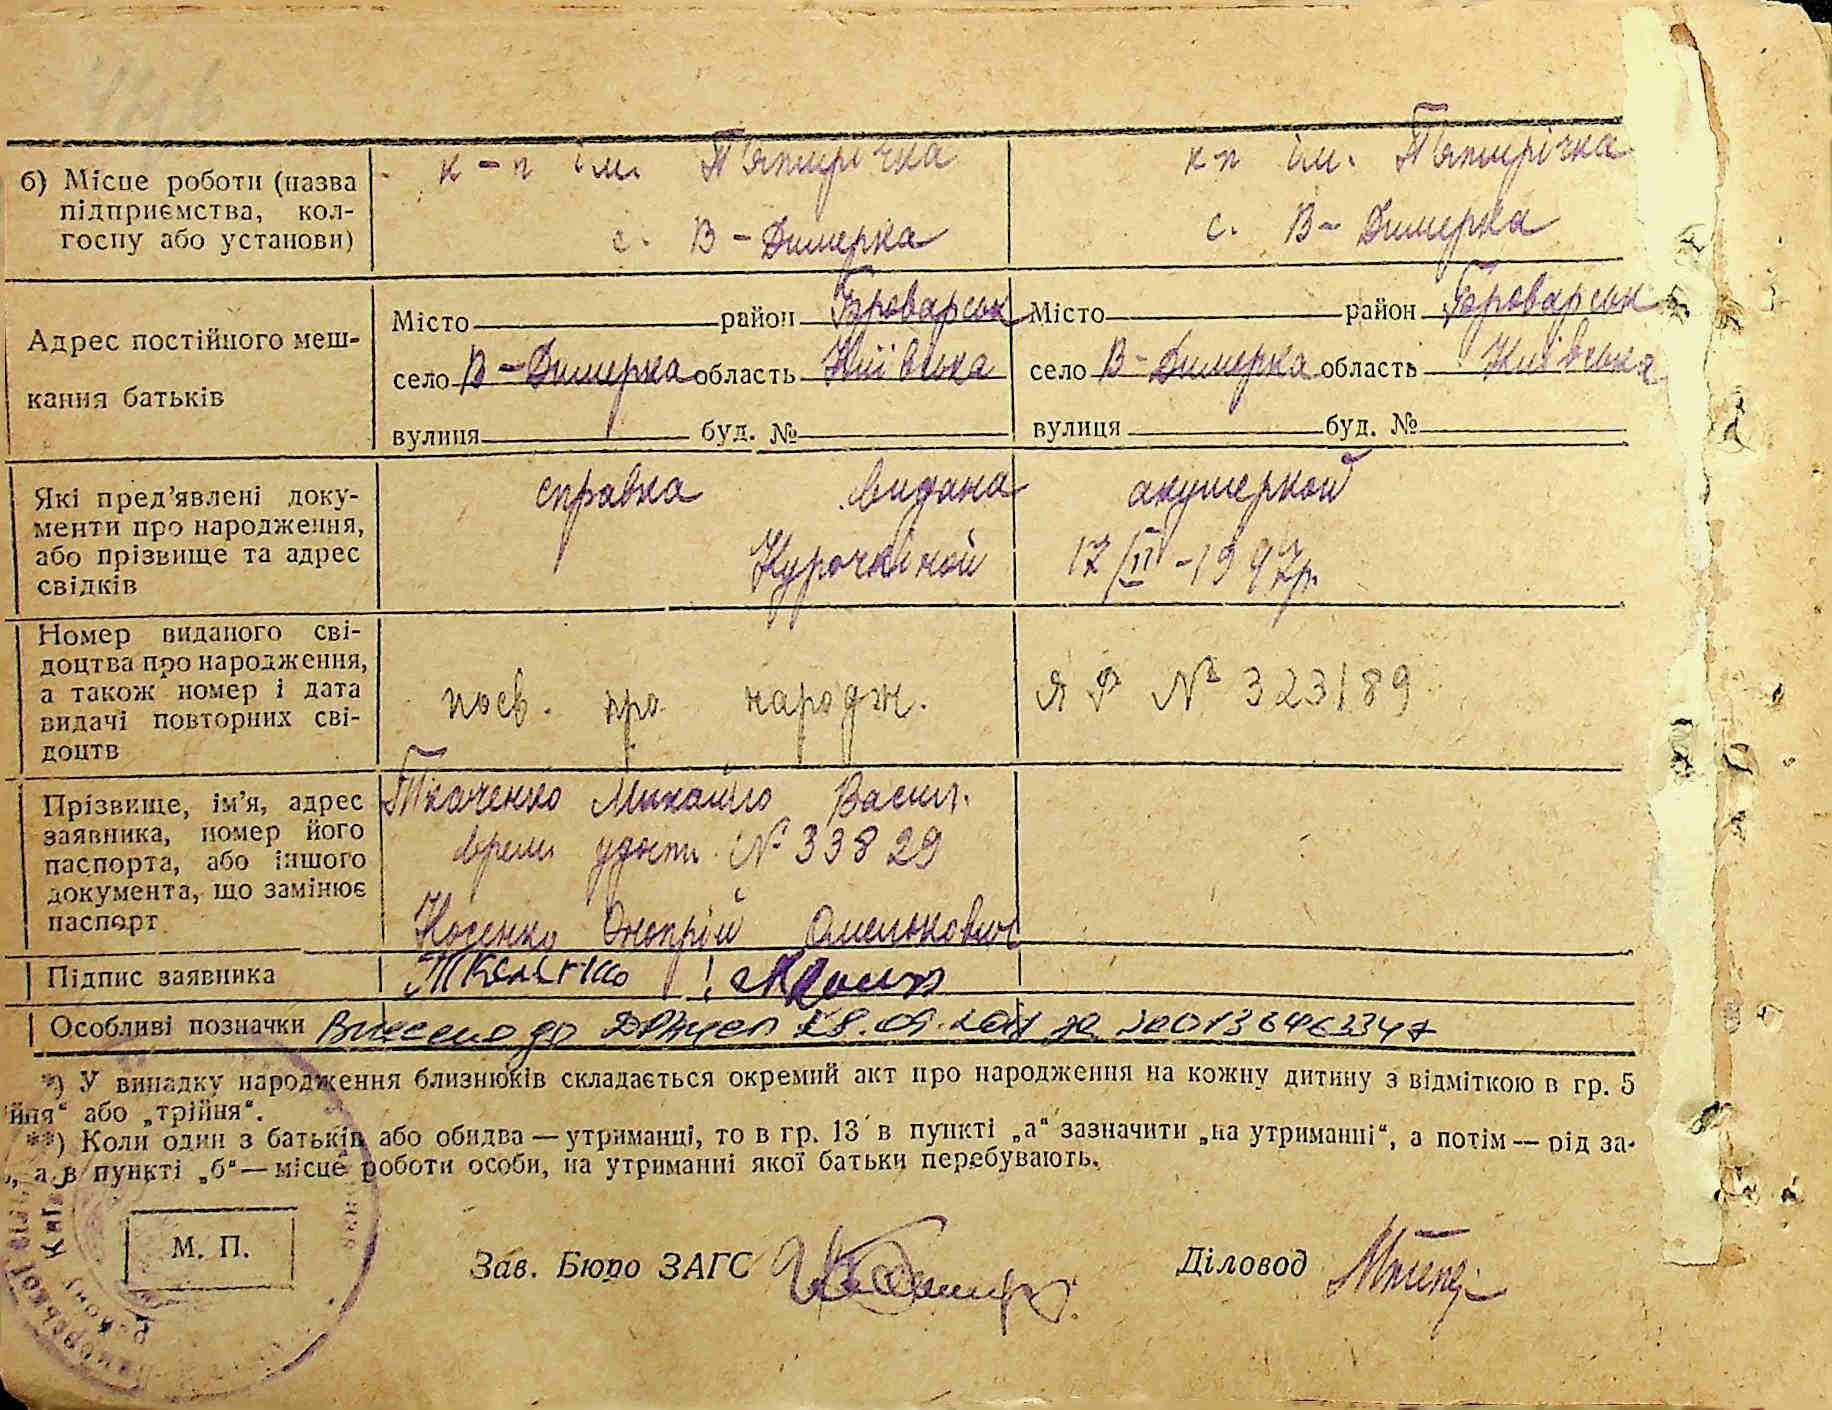 б) Місце роботи (назва підприємства, кол-госпу або установи)
к-п ім. Пятирічка
с. В-Димерка
к-п ім. Пятирічка
с. В-Димерка
Адрес постійного меш-
кання батьків
Місто район Броварськ
село В-Димерка область Київська
вулиця буд. №
Місто район Броварськ
село В-Димерка область Київська
вулиця буд. №
Які пред'явлені доку-
менти про народження,
або прізвище та адрес
свідків
справка видана акушеркой
Курочкіной 17/III-1947р.
Номер виданого сві-
доцтва про народження,
а також номер і дата
видачі повторних сві-
доцтв
посв. про народж. ЯР № 323189
Прізвище, ім'я, адрес
заявника, номер його
паспорта, або іншого
документа, що замінює
паспорт
Ткаченко Михайло Васил.
врем. удост. № 33829
Косенко Омелькович
Підпис заявника
Особливі позначки Внесено до 28.09.2011 за
*) У випадку народження близнюків складається окремий акт про народження на кожну дитину з відміткою в гр. 5
ійня" або „трійня".
**) Коли один з батьків або обидва — утриманці, то в гр. 13 в пункті „а" зазначити „на утриманні", а потім — рід за-
, а в пункті „б" — місце роботи особи, на утриманні якої батьки перебувають.
М. П.
Зав. Бюро ЗАГС
Діловод